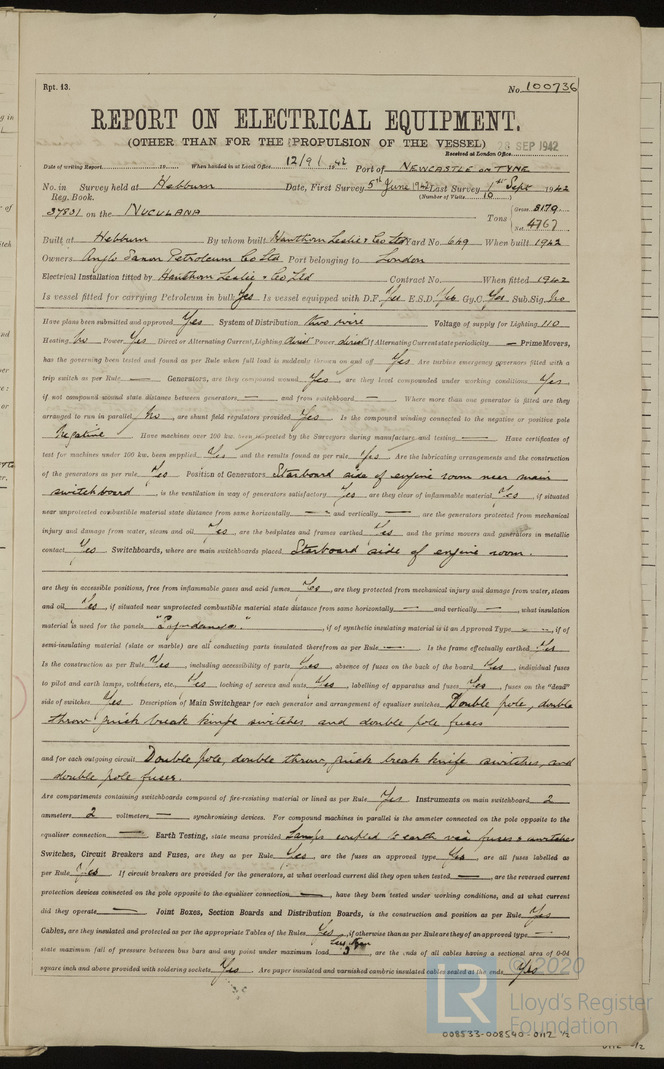 Rpt. 13.
No. 100736
REPORT ON ELECTRICAL EQUIPMENT.
(OTHER THAN FOR THE PROPULSION OF THE VESSEL)
28 SEP 1942
Received at London Office
Date of writing Report 19 When handed in at Local Office 12/9/ 1942 Port of NEWCASTLE ON TYNE
No. in Survey held at Hebburn Date, First Survey 5th June 1942 Last Survey 1st Sept 1942
Reg. Book. (Number of Visits 10 )
37831 on the NUCULANA Tons { Gross 8179 Net 4767
Built at Hebburn By whom built Hawthorn Leslie & Co Ltd Yard No. 649 When built 1942
Owners Anglo Saxon Petroleum Co Ltd Port belonging to London
Electrical Installation fitted by Hawthorn Leslie & Co Ltd Contract No. When fitted 1942
Is vessel fitted for carrying Petroleum in bulk Yes. Is vessel equipped with D.F. Yes E.S.D. Yes Gy.C. Yes Sub.Sig. No
Have plans been submitted and approved Yes System of Distribution two wire Voltage of supply for Lighting 110
Heating No Power Yes Direct or Alternating Current, Lighting direct Power direct If Alternating Current state periodicity — Prime Movers,
has the governing been tested and found as per Rule when full load is suddenly thrown on and off Yes Are turbine emergency governors fitted with a
trip switch as per Rule — Generators, are they compound wound Yes, are they level compounded under working conditions Yes,
if not compound wound state distance between generators — and from switchboard — Where more than one generator is fitted are they
arranged to run in parallel No, are shunt field regulators provided Yes Is the compound winding connected to the negative or positive pole
Negative Have machines over 100 kw. been inspected by the Surveyors during manufacture and testing — Have certificates of
test for machines under 100 kw. been supplied Yes and the results found as per rule Yes Are the lubricating arrangements and the construction
of the generators as per rule Yes Position of Generators Starboard side of engine room near main
switchboard, is the ventilation in way of generators satisfactory Yes, are they clear of inflammable material Yes, if situated
near unprotected combustible material state distance from same horizontally — and vertically —, are the generators protected from mechanical
injury and damage from water, steam and oil Yes, are the bedplates and frames earthed Yes and the prime movers and generators in metallic
contact Yes Switchboards, where are main switchboards placed Starboard side of engine room.
are they in accessible positions, free from inflammable gases and acid fumes Yes, are they protected from mechanical injury and damage from water, steam
and oil Yes, if situated near unprotected combustible material state distance from same horizontally — and vertically —, what insulation
material is used for the panels "Sindanyo.", if of synthetic insulating material is it an Approved Type —, if of
semi-insulating material (slate or marble) are all conducting parts insulated therefrom as per Rule — Is the frame effectually earthed Yes
Is the construction as per Rule Yes, including accessibility of parts Yes, absence of fuses on the back of the board Yes, individual fuses
to pilot and earth lamps, voltmeters, etc. Yes locking of screws and nuts Yes, labelling of apparatus and fuses Yes, fuses on the "dead"
side of switches Yes Description of Main Switchgear for each generator and arrangement of equaliser switches Double pole, double
throw quick break knife switches and double pole fuses
and for each outgoing circuit Double pole, double throw, quick break knife switches, and
double pole fuses.
Are compartments containing switchboards composed of fire-resisting material or lined as per Rule Yes Instruments on main switchboard 2
ammeters 2 voltmeters — synchronising devices. For compound machines in parallel is the ammeter connected on the pole opposite to the
equaliser connection — Earth Testing, state means provided Lamps coupled to earth via fuses & switches
Switches, Circuit Breakers and Fuses, are they as per Rule Yes, are the fuses an approved type Yes, are all fuses labelled as
per Rule Yes If circuit breakers are provided for the generators, at what overload current did they open when tested —, are the reversed current
protection devices connected on the pole opposite to the equaliser connection —, have they been tested under working conditions, and at what current
did they operate — Joint Boxes, Section Boards and Distribution Boards, is the construction and position as per Rule Yes
Cables, are they insulated and protected as per the appropriate Tables of the Rules Yes, if otherwise than as per Rule are they of an approved type —
state maximum fall of pressure between bus bars and any point under maximum load Less than 3, are the ends of all cables having a sectional area of 0·04
square inch and above provided with soldering sockets Yes. Are paper insulated and varnished cambric insulated cables sealed at the ends Yes
© 2020
LR
Lloyd's Register
Foundation
008533-008540-0112 1/2